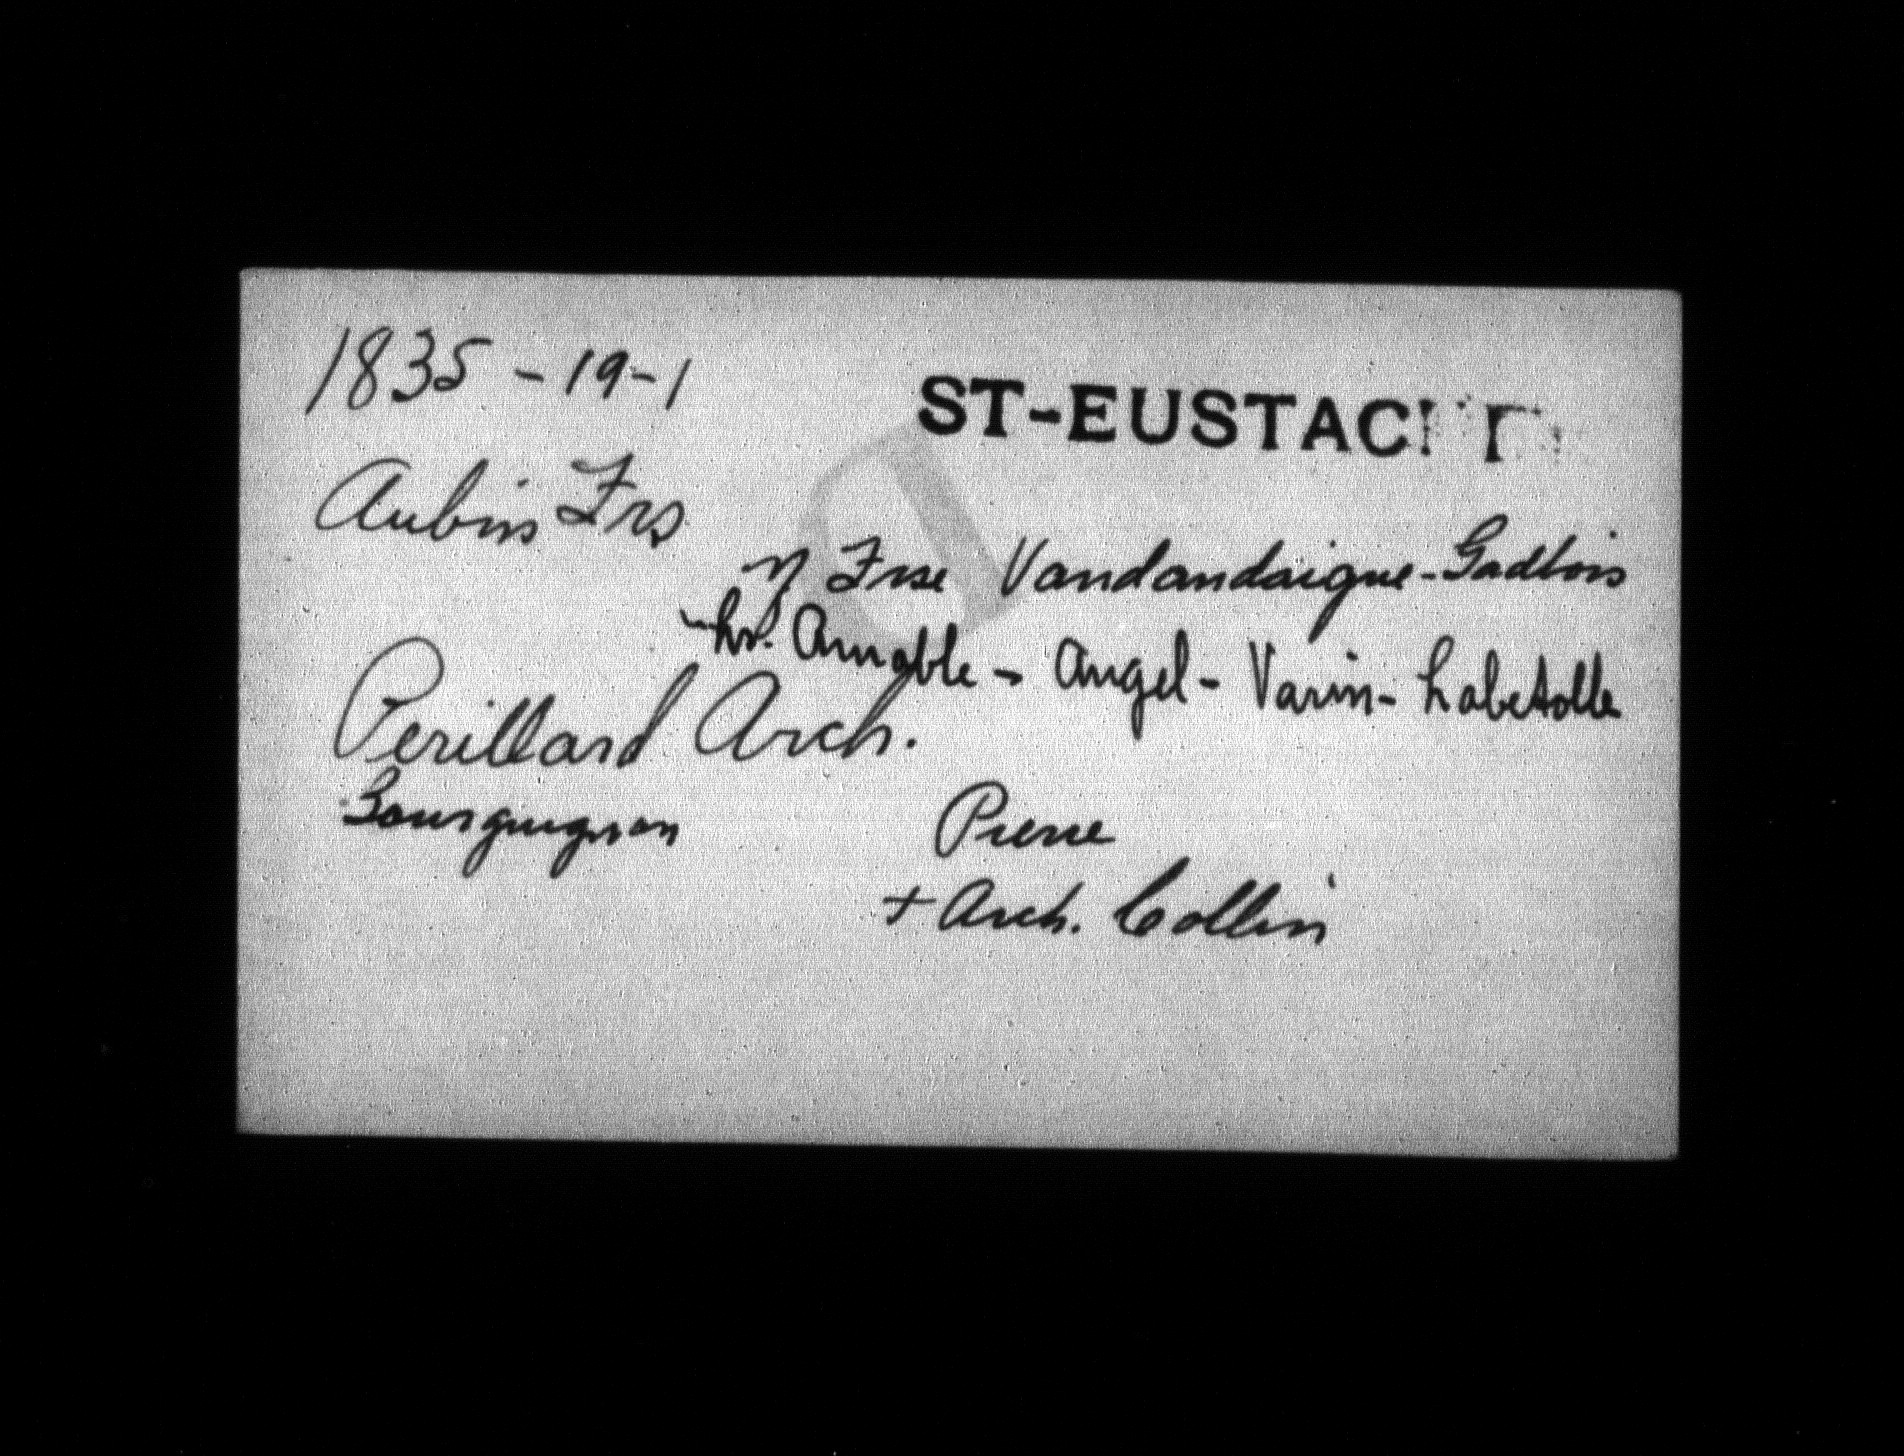 1835 - 19 - 1
ST-EUSTAC
Aubin Frs
Frse Vandandaigue - Gadbois
Amable - Angel - Varin - Labetolle
Perillard Arch.
Bourguignon
Pierre
+ Arch. Collin